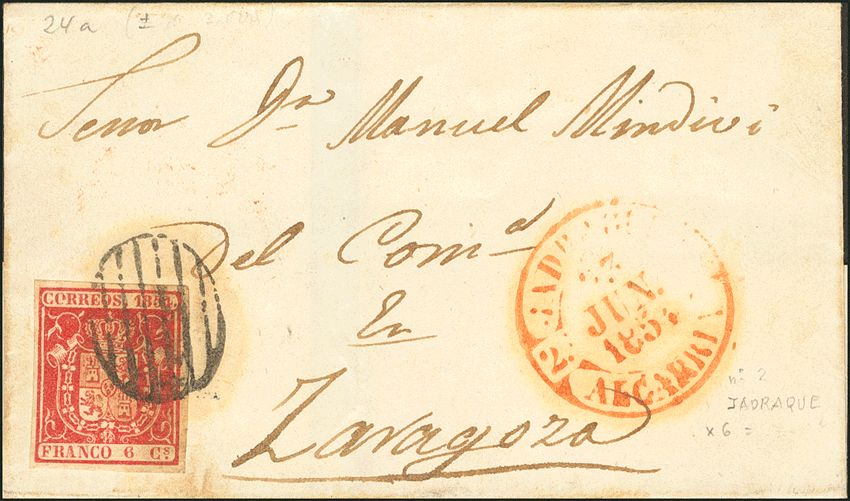 24a (±
Señor Dn Manuel Mindivi
Del Comd
En
Zaragoza
CORREOS. 1854.
FRANCO 6 Cs.
JADRAQUE
JUN.
185
2
ALCARRIA
nº 2
JADRAQUE
x 6 =